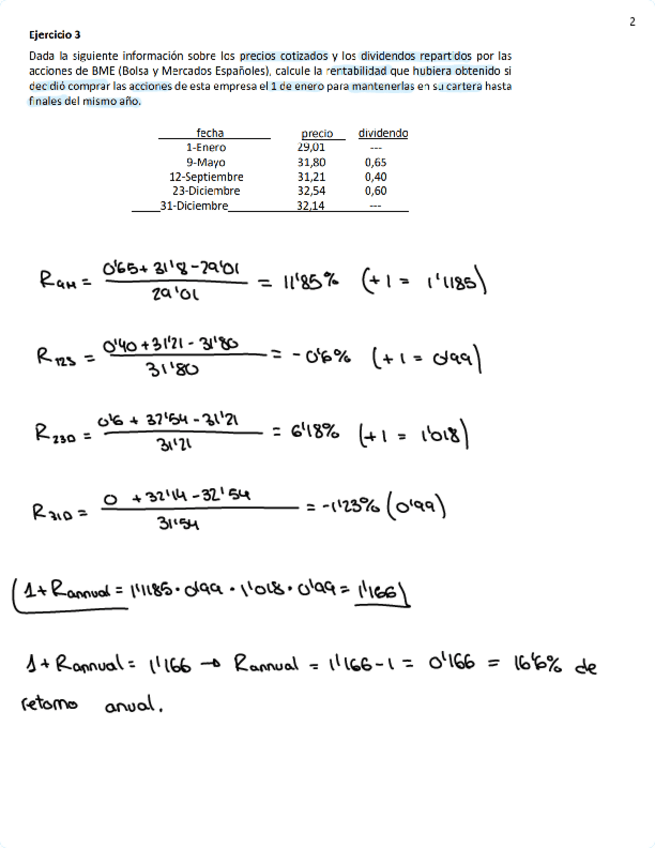 2
Ejercicio 3
Dada la siguiente información sobre los precios cotizados y los dividendos repartidos por las
acciones de BME (Bolsa y Mercados Españoles), calcule la rentabilidad que hubiera obtenido si
decidió comprar las acciones de esta empresa el 1 de enero para mantenerlas en su cartera hasta
finales del mismo año.
fecha precio dividendo
1-Enero 29,01 ---
9-Mayo 31,80 0,65
12-Septiembre 31,21 0,40
23-Diciembre 32,54 0,60
31-Diciembre 32,14 ---
R9M = 0'65 + 31'8 - 29'01 / 29'01 = 11'85% (+1 = 1'1185)
R12S = 0'40 + 31'21 - 31'80 / 31'80 = -0'6% (+1 = 0'99)
R23D = 0'6 + 32'54 - 31'21 / 31'21 = 6'18% (+1 = 1'018)
R31D = 0 + 32'14 - 32'54 / 31'54 = -1'23% (0'99)
(1 + Rannual = 1'1185 · 0'99 · 1'018 · 0'99 = 1'166)
1 + Rannual = 1'166 → Rannual = 1'166 - 1 = 0'166 = 16'6% de
retorno anual.